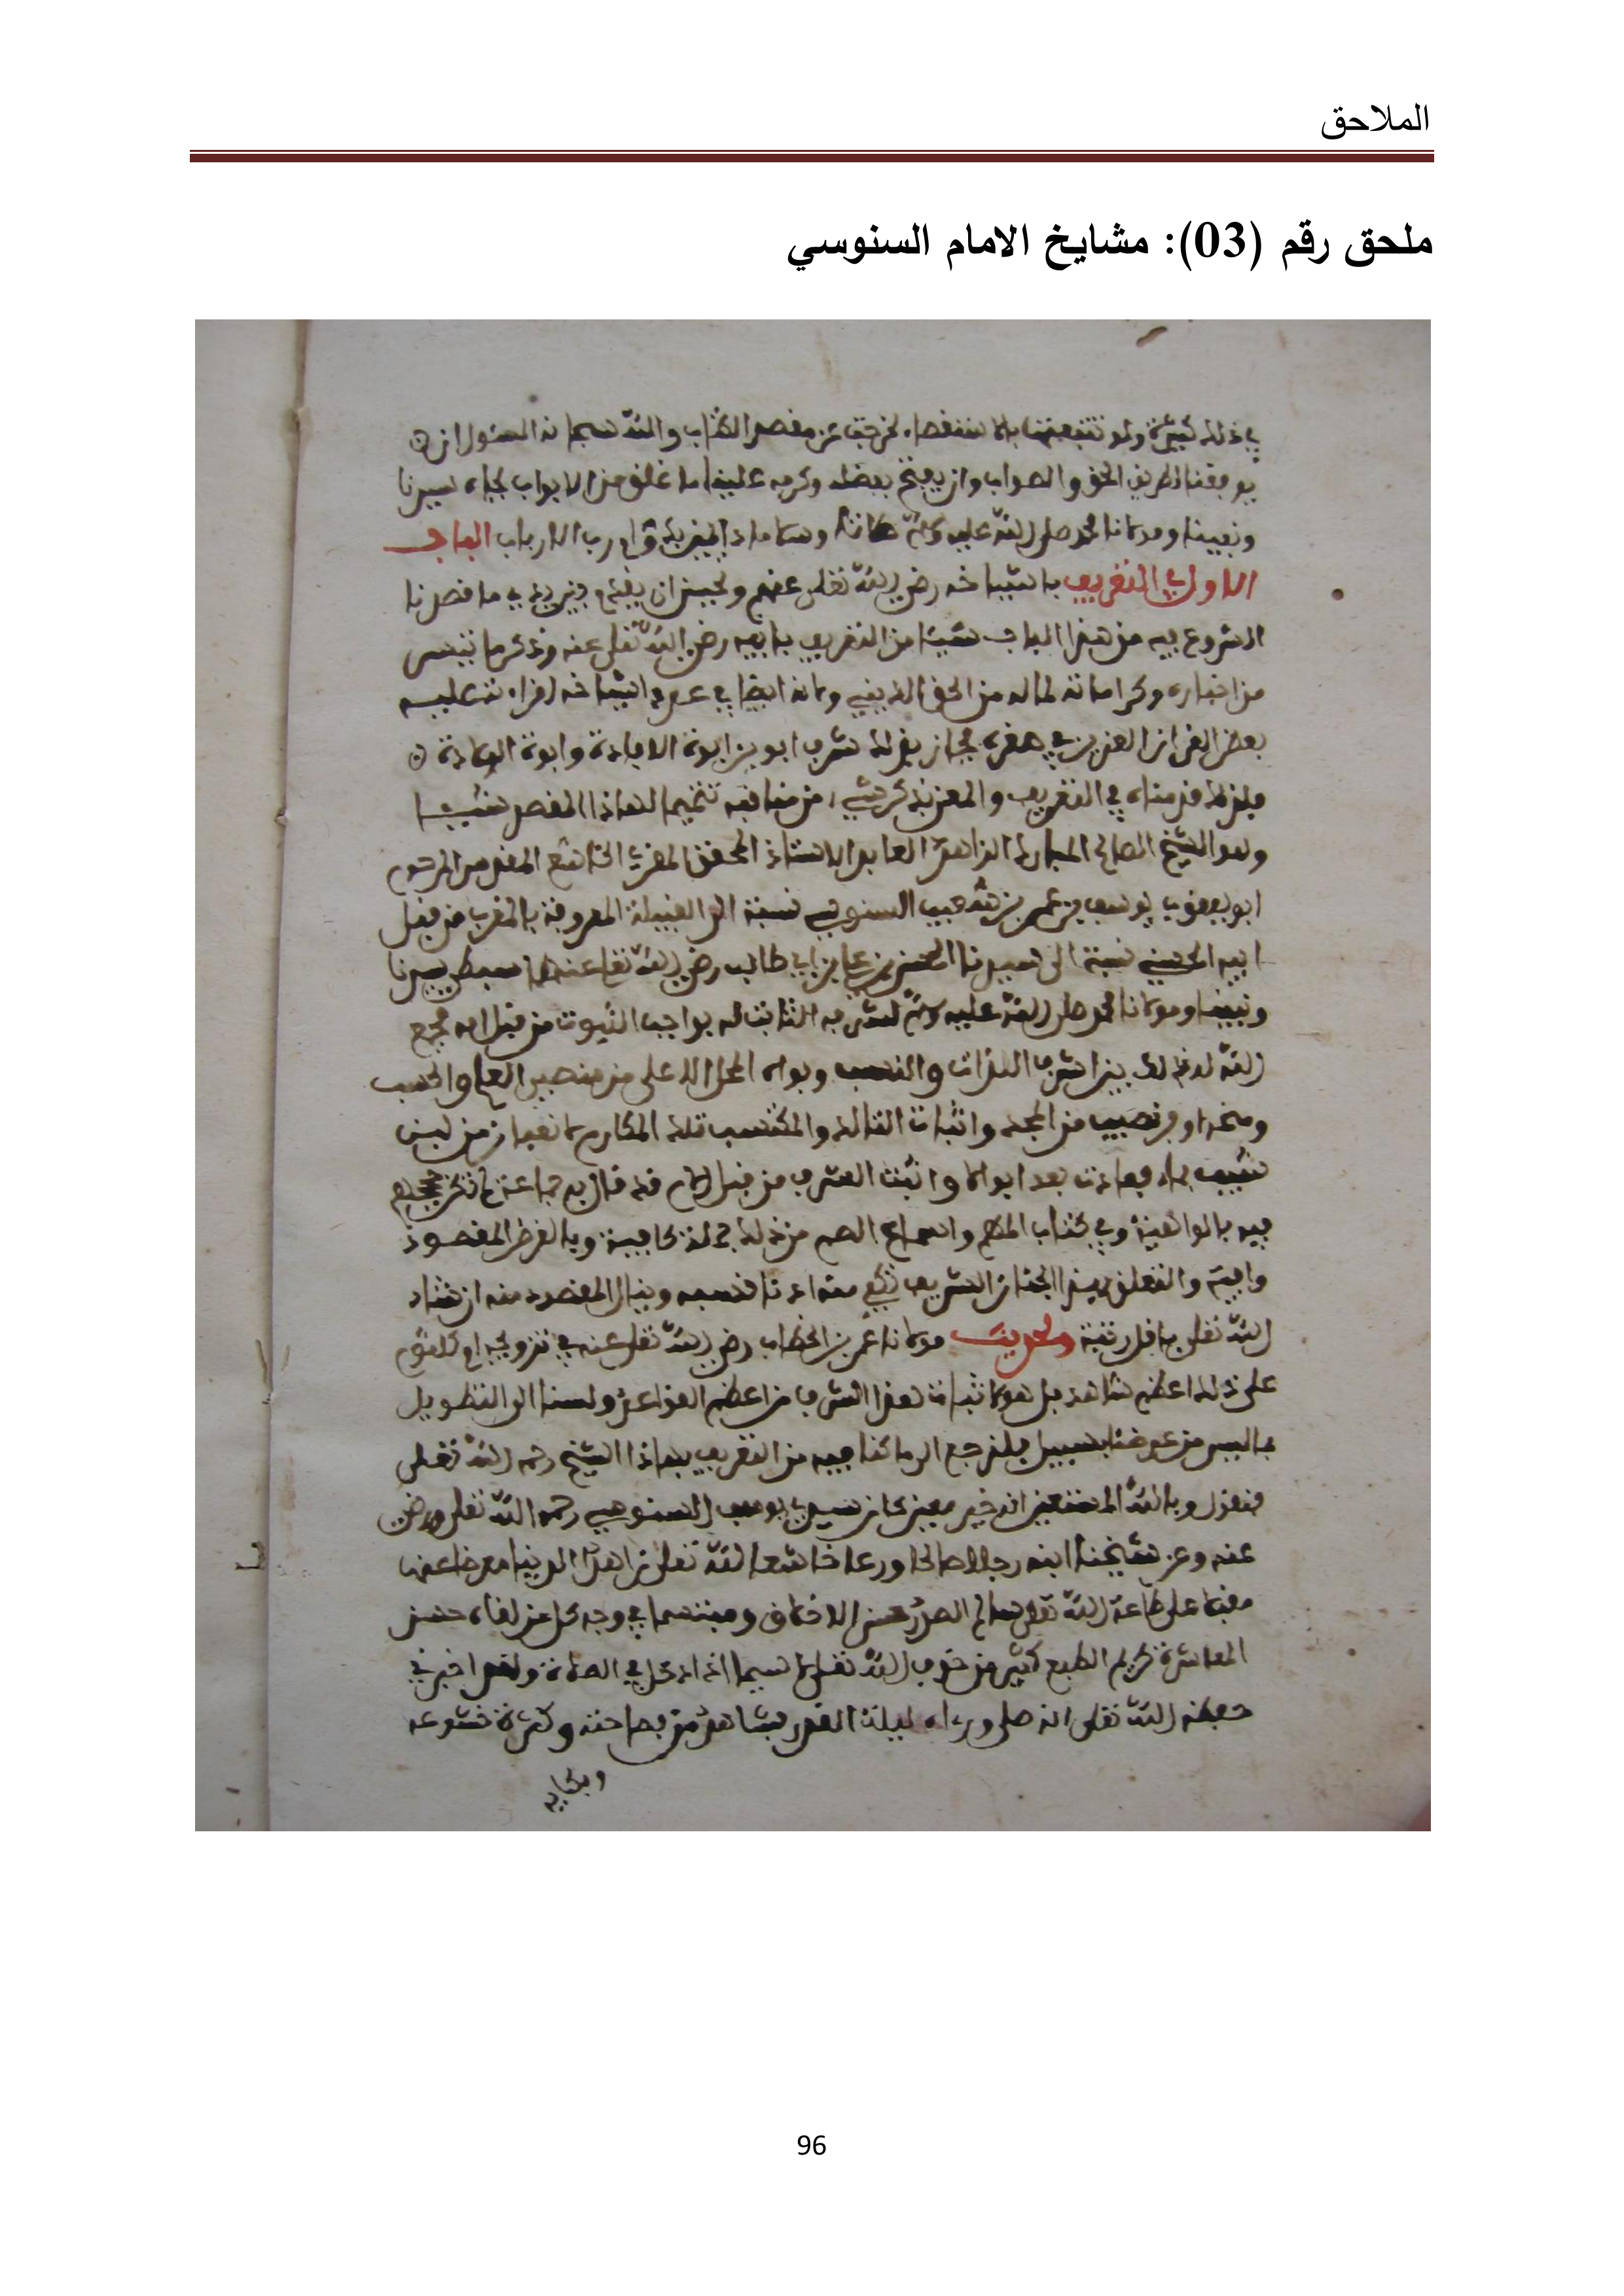 الملاحق
ملحق رقم (03): مشايخ الامام السنوسي
في ذلك كثيرة ولو تتبعتها بالاستقصاء لخرجت عن مقصد الكتاب والله سبحانه المسئول ان
يوفقنا لطريق الحق والصواب وان يفتح بفضله وكرمه علينا ما غلق من الابواب بجاه سيدنا
ونبينا ومولانا محمد صلى الله عليه وسلم صلاة وسلاما رب الارباب الباب
الاول في التعريف باشياخه رضي الله تعلى عنهم ما قصدنا
الشروع فيه من هذا الباب شيئا من التعريف بابيه رضي الله تعلى عنه وذكر ما تيسر
من اخباره وكراماته لما له من الحق ولانه ايضا في عدد اشياخه اذ قراءته عليه
بعض القران العزيز في صغره شرف ابوين ابوة الافادة وابوة الولادة
في التعريف من مناقبه تتميما لهاذا المقصد
وهو الشيخ الصالح المبارك الزاهد العابد الاستاذ المحقق المقرئ الخاشع المقدس المرحوم
ابو يعقوب يوسف بن عمر بن شعيب السنوسي نسبة الى القبيلة المعروفة بالمغرب من قبل
ابيه الحسني نسبة الى سيدنا الحسن بن علي بن ابي طالب رضي الله تعلى عنه سبط سيدنا
ونبينا ومولانا محمد صلى الله عليه وسلم الثابت له بواجب الثبوت من قبل امه فجمع
الله له بذلك بين اشرف الذات والنسب وبواه المحل الاعلى من منصبي العلم والحسب
ومنحه اوفر نصيب من المجد التالد والمكتسب تلك المكارم لا قعبان من لبن
شيب بماء فعادت بعد ابوالا الشرف من قبل الام قد قال به جماعة
وفي كتاب واسماع الصم من ذلك جملة كافية وبالغرض المقصود
وافية والتعلق بهذا الجناب الشريف ان شاء
الله تعلى باقل رتبة وحديث مولانا عمر بن الخطاب رضي الله تعلى عنه في تزويجه ام كلثوم
على ذلك اعظم شاهد بل هو لاثبات هذا الشرف من اعظم القواعد ولسنا الى التطويل
بما ليس من غرضنا بسبيل فلنرجع الى ما كنا فيه من التعريف بهاذا الشيخ رحمه الله تعلى
فنقول وبالله المستعين انه خير معين كان سيدي يوسف السنوسي رحمه الله تعلى ورضي
عنه وعن شيخنا ابنه رجلا صالحا ورعا خاشعا لله تعلى زاهدا في الدنيا معرضا عنها
مقبلا على طاعة الله تعلى سالم الصدر حسن الاخلاق ومبتسما في وجه كل من لقاه حسن
المعاشرة كريم الطبع كثير من خوف الله تعلى لا سيما اذا دخل في الصلاة ولقد اخبرني
حفظه الله تعلى انه صلى وراءه ليلة القدر فشاهد من فصاحته وكثرة خشوعه
وبكايه
96